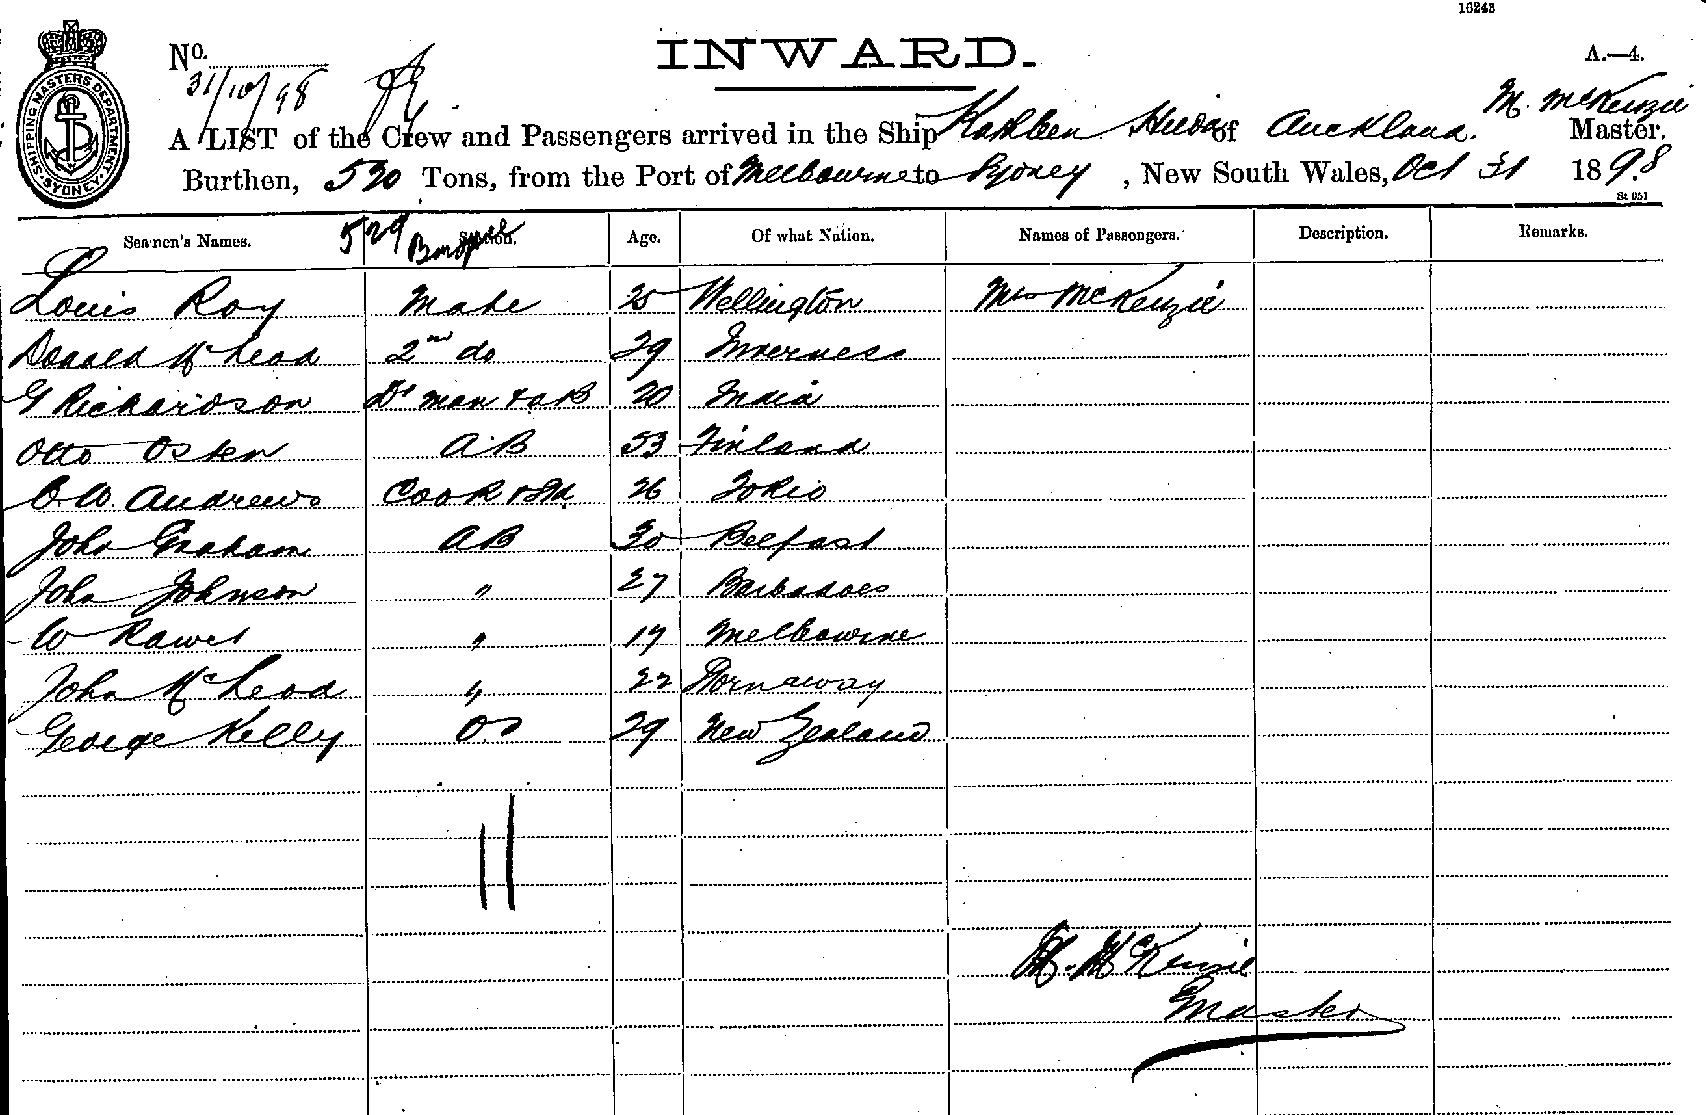 16243
INWARD.
A.—4.
No.
31/10/98
SHIPPING MASTERS DEPARTMENT. SYDNEY.
M. McKenzie
A LIST of the Crew and Passengers arrived in the Ship Kathleen Hilda of Auckland. Master.
Burthen, 520 Tons, from the Port of Melbourne to Sydney, New South Wales, Oct 31 1898
St 051
529
Seamen's Names. Station. Age. Of what Nation. Names of Passengers. Description. Remarks.
Louis Roy Mate 25 Wellington Mrs McKenzie
Donald McLeod 2nd do 29 Inverness
G Richardson Dk man & AB 20 India
Otto AB 53 Finland
W. Andrews Cook & Std. 26 Tokio
John Graham AB 30 Belfast
John Johnson " 27 Barbadoes
W Rawes " 19 Melbourne
John McLeod " 22 Stornaway
George Kelly OS 29 New Zealand
11
M. McKenzie
Master